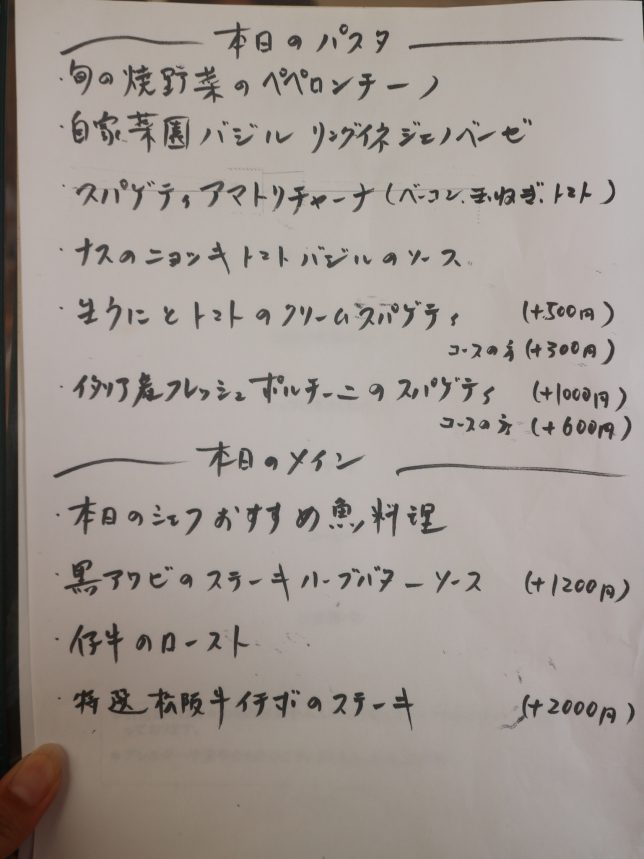 本日のパスタ
・旬の焼野菜のペペロンチーノ
・自家菜園バジル リングイネジェノベーゼ
・スパゲティアマトリチャーナ(ベーコン、玉ねぎ、トマト)
・ナスのニョッキトマトバジルのソース
・生うにとトマトのクリームスパゲティ (+500円)
コースの方(+300円)
・イタリア産フレッシュポルチーニのスパゲティ (+1000円)
コースの方(+600円)
本日のメイン
・本日のシェフおすすめ魚料理
・黒アワビのステーキハーブバターソース (+1200円)
・仔牛のロースト
・特選松阪牛イチボのステーキ (+2000円)